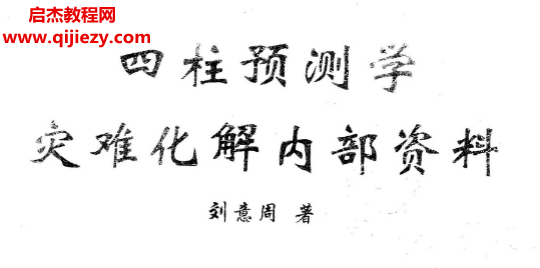 启杰教程网
www.qijiezy.com
四柱预测学
灾难化解内部资料
刘意周 著